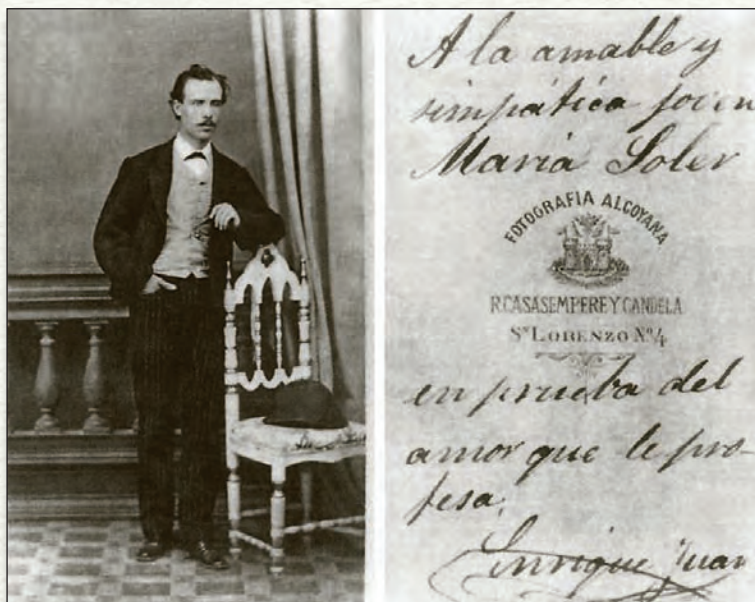 A la amable y
simpática joven
María Soler
FOTOGRAFIA ALCOYANA
R. CASASEMPERE Y CANDELA
Sn LORENZO Nº 4
en prueba del
amor que le pro-
fesa,
Enrique Juan